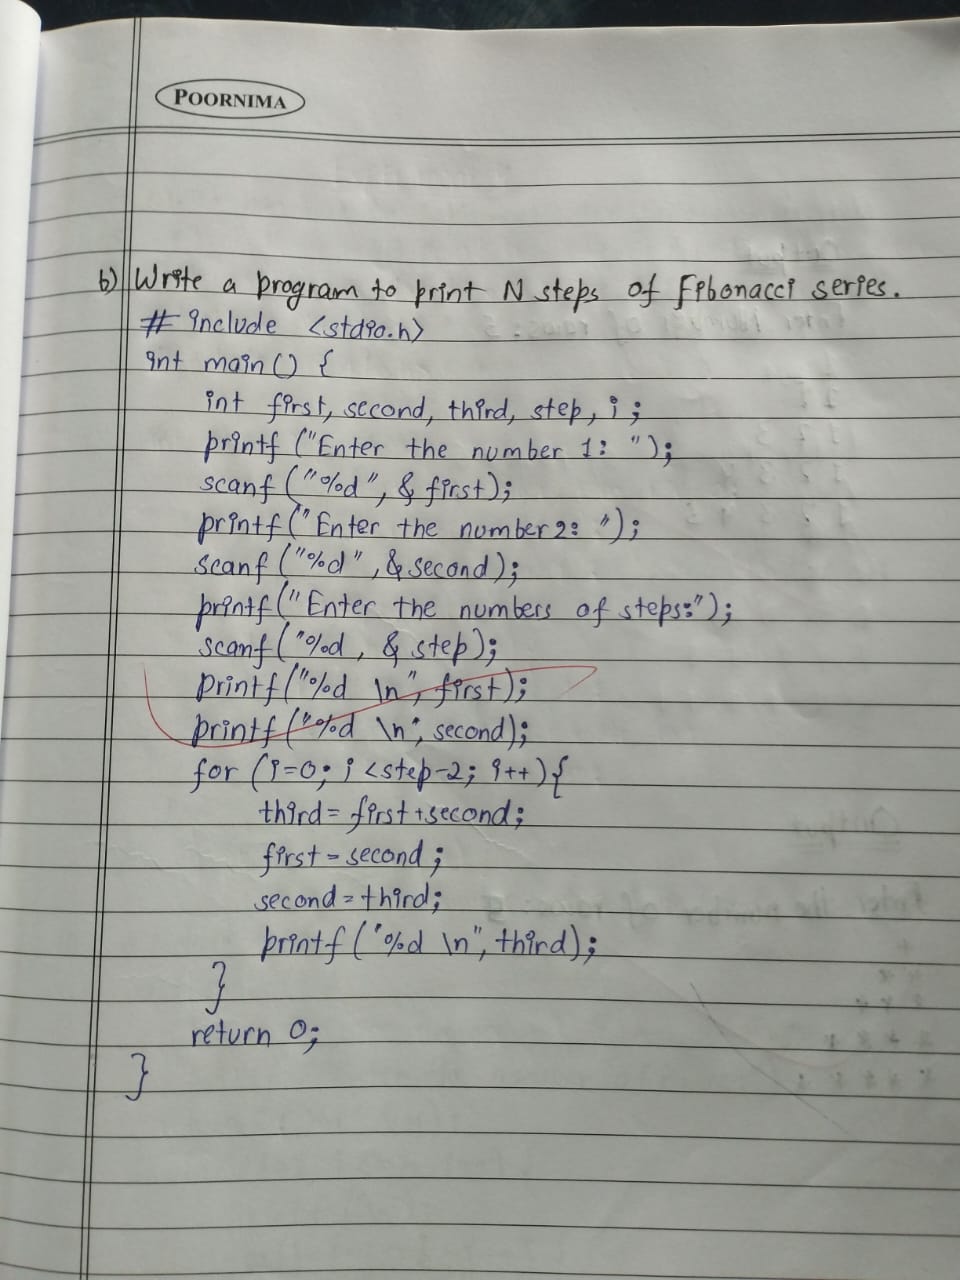 POORNIMA
b) Write a program to print N steps of Fibonacci series.
# include <stdio.h>
int main() {
int first, second, third, step, i;
printf ("Enter the number 1: ");
scanf ("%d", & first);
printf ("Enter the number 2: ");
scanf ("%d", & second);
printf ("Enter the numbers of steps:");
scanf ("%d, & step);
printf ("%d \n", first);
printf ("%d \n", second);
for (i=0; i <step-2; i++){
third = first + second;
first = second;
second = third;
printf ("%d \n", third);
}
return 0;
}